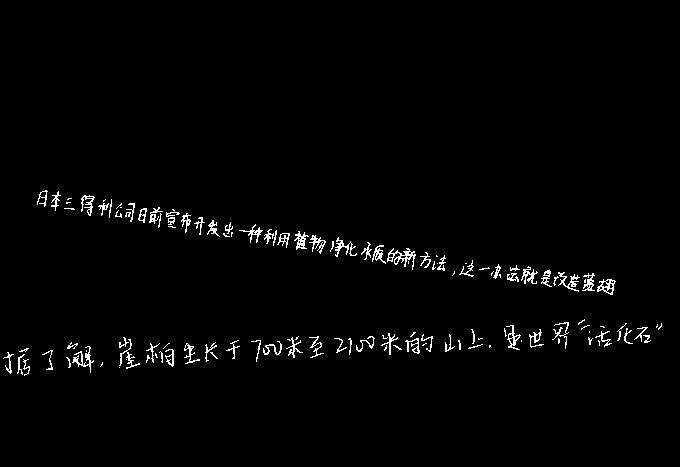 日本三得利公司日前宣布开发出一种利用植物净化水质的新方法，这一办法就是改造蓝翅
据了解，崖柏生长于700米至2100米的山上，是世界“活化石”